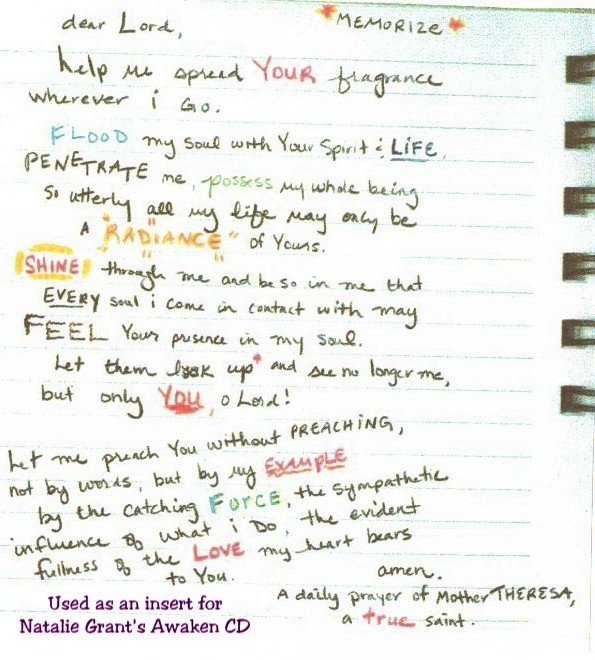 *MEMORIZE*
dear Lord,
help me spread YOUR fragrance
wherever i Go.
FLOOD my soul with Your Spirit & LIFE.
PENETRATE me, possess my whole being
so utterly all my life may only be
A "RADIANCE" of Yours.
SHINE through me and be so in me that
EVERY soul i come in contact with may
FEEL Your presence in my soul.
Let them look up* and see no longer me,
but only YOU, o Lord!
Let me preach You without PREACHING,
not by words, but by my EXAMPLE
by the catching FORCE, the sympathetic
influence of what i Do, the evident
fullness of the LOVE my heart bears
to You. amen.
A daily prayer of Mother THERESA,
a true saint.
Used as an insert for
Natalie Grant's Awaken CD